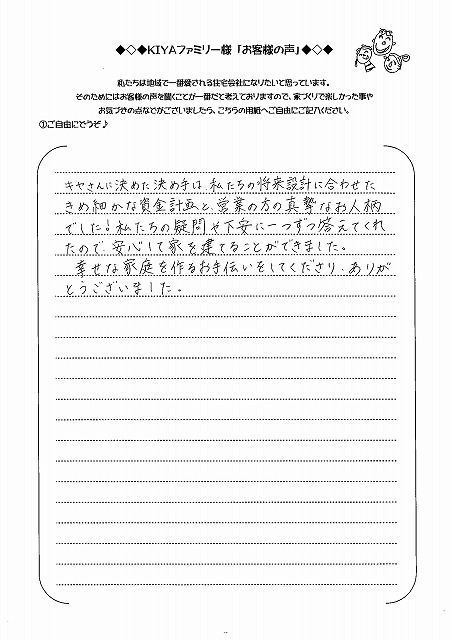 ◆◇◆KIYAファミリー様「お客様の声」◆◇◆
私たちは地域で一番愛される住宅会社になりたいと思っています。
そのためにはお客様の声を聞くことが一番だと考えておりますので、家づくりで楽しかった事や
お気づきの点などがございましたら、こちらの用紙へご自由にご記入ください。
①ご自由にどうぞ♪
キヤさんに決めた決め手は、私たちの将来設計に合わせた
きめ細かな資金計画と、営業の方の真摯なお人柄
でした！私たちの疑問や不安に一つずつ答えてくれ
たので、安心して家を建てることができました。
幸せな家庭を作るお手伝いをしてくださり、ありが
とうございました。